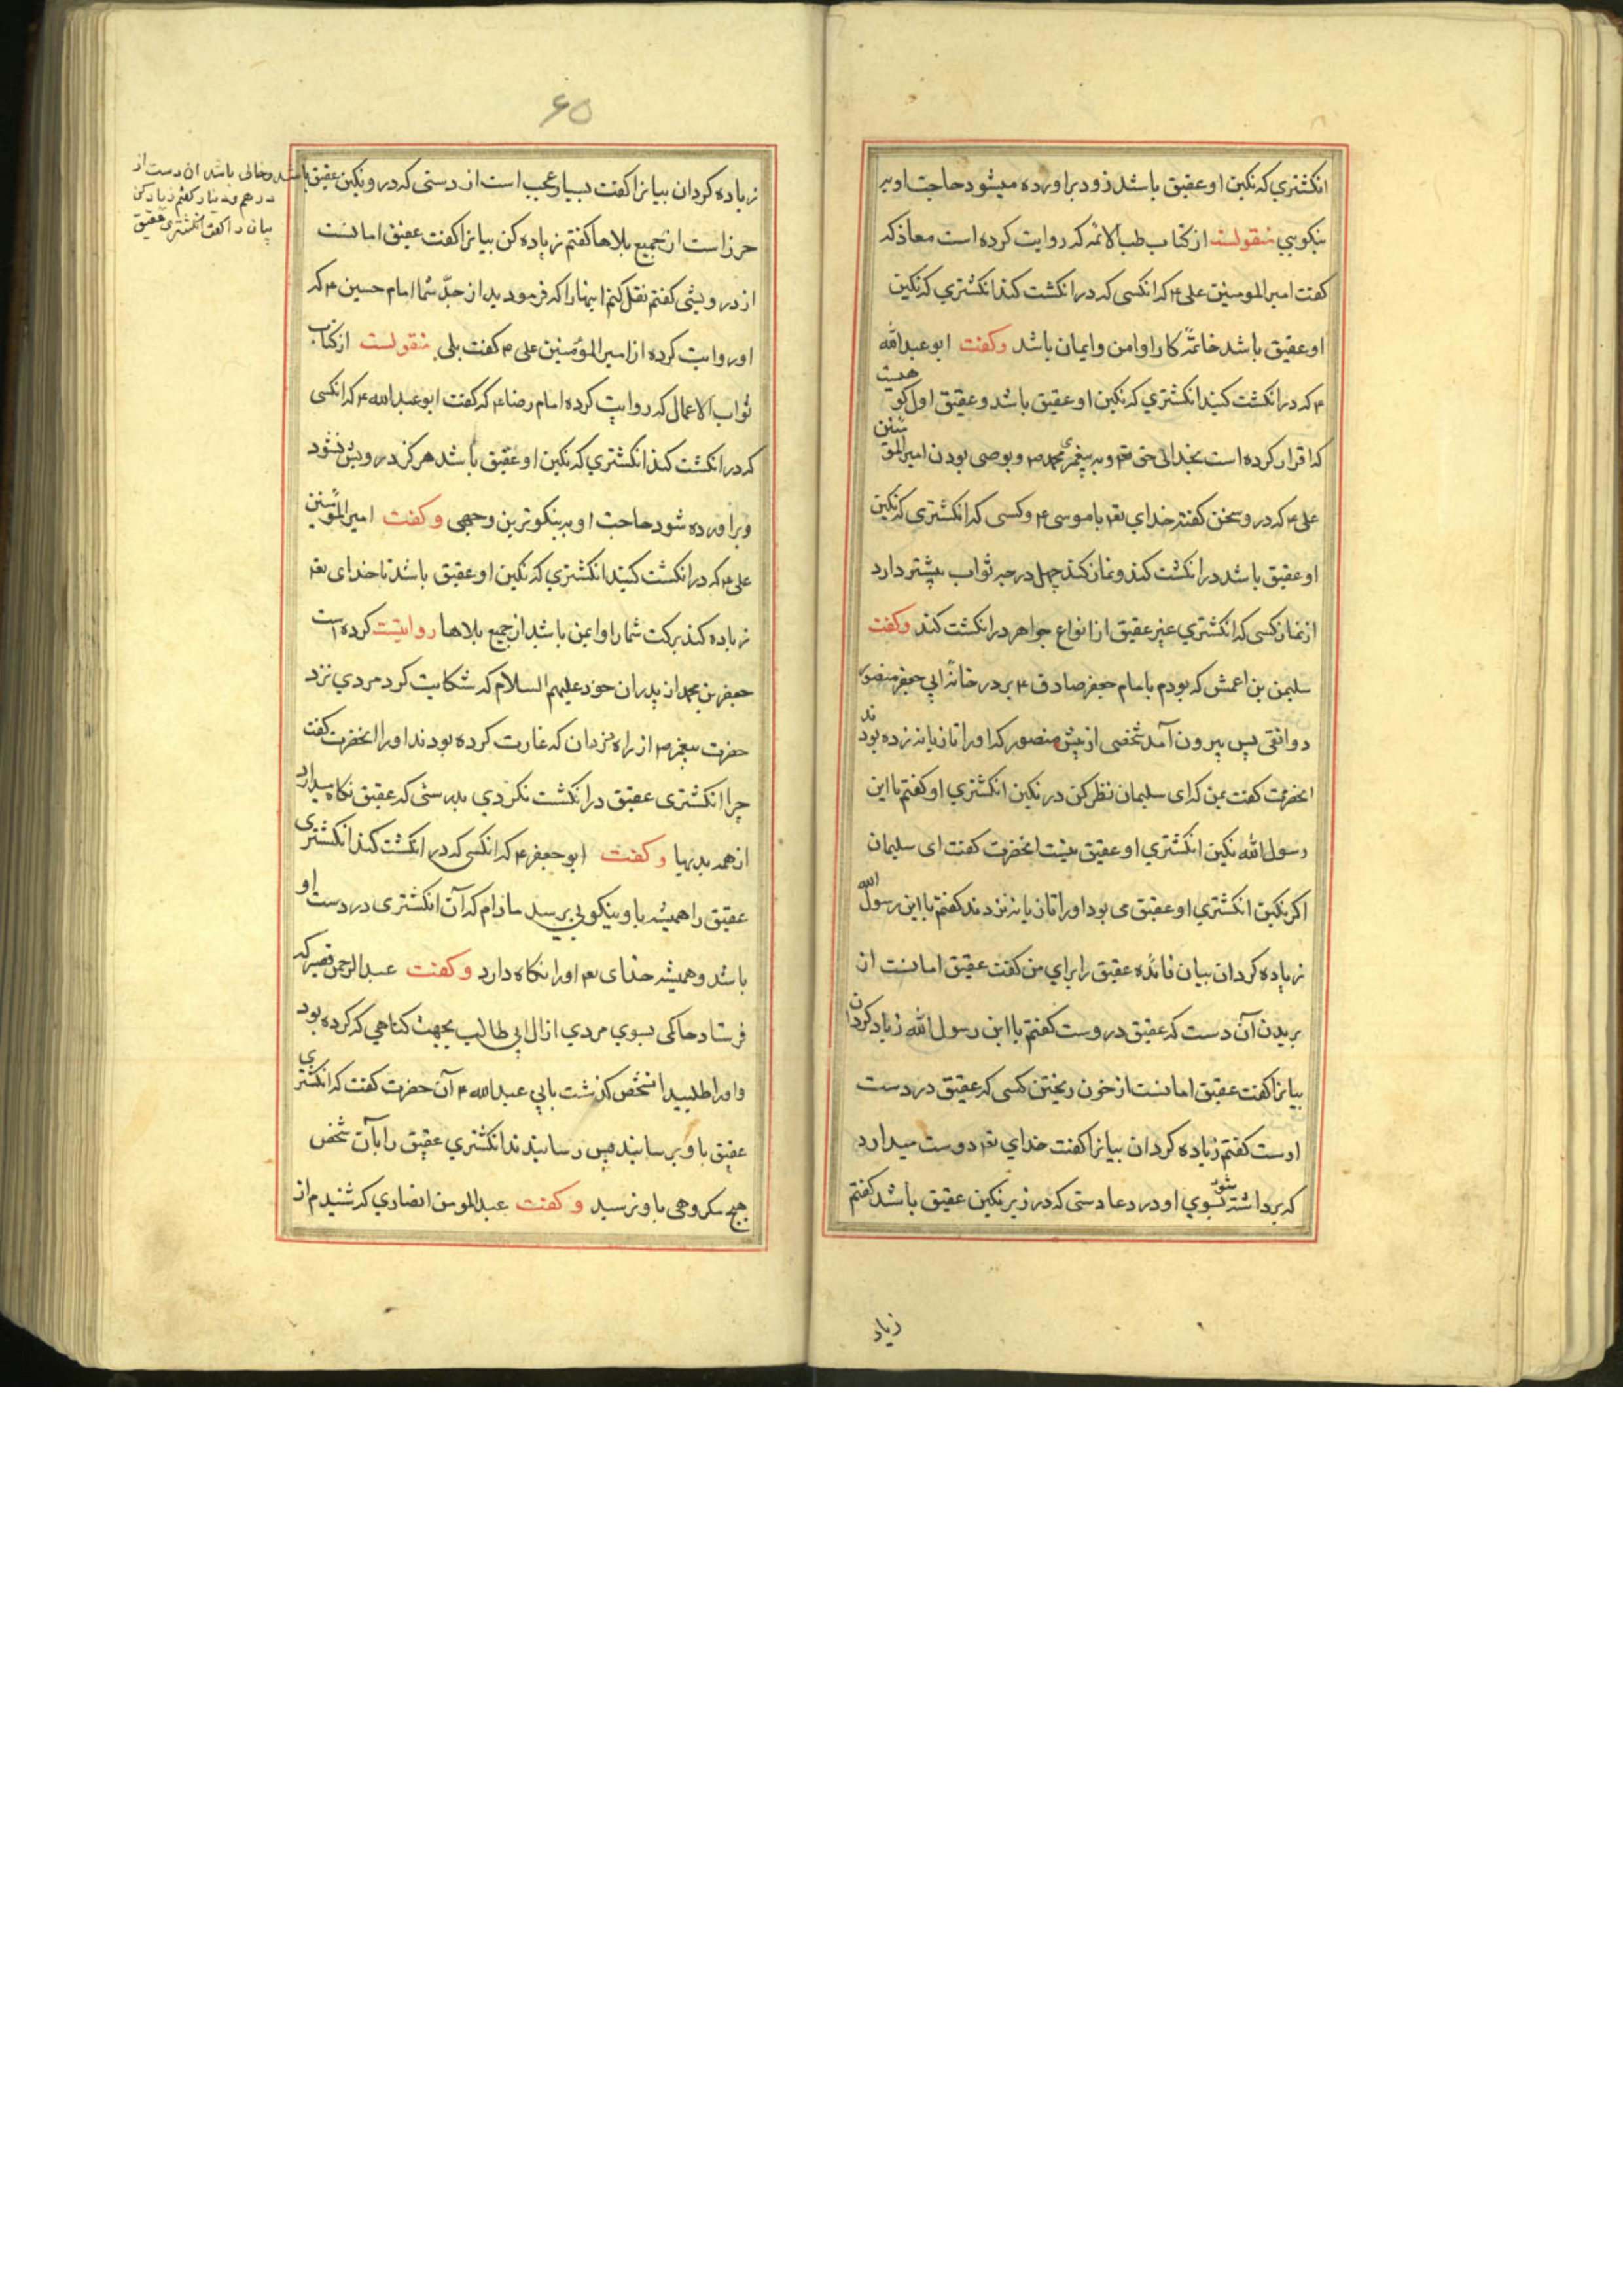 انکشتري که نکین او عقیق باشد زود براورده میشود حاجت او به
نیکویي منقولست از کتاب طب الائمه که روایت کرده است معاذ که
کفت امیر المومنین علی ۴ که انکسی که در انکشت کند انکشتري که نکین
او عقیق باشد خاتمه کار او امن و ایمان باشد وکفت ابو عبد الله
۴ که در انکشت کنید انکشتري که نکین او عقیق باشد و عقیق اول کوهیست
که اقرار کرده است بخدائی حق تعم و به پیغمبري محمد ص و بوصی بودن امیر المؤمنین
علی ۴ که در و سخن کفته خداي تعم با موسی ۴ و کسی که انکشتري که نکین
او عقیق باشد در انکشت کند و نماز کند چهل درجه ثواب بیشتر دارد
از نماز کسی که انکشتري غیر عقیق از انواع جواهر در انکشت کند وکفت
سلیمن بن اعمش که بودم با امام جعفر صادق ۴ بر در خانه ابي جعفر منصور
دوانقی پس بیرون آمد شخصی از پیش منصور که او را تازیانه زده بودند
انحضرت کفت بمن که ای سلیمان نظر کن در نکین انکشتري او کفتم یا ابن
رسول الله نکین انکشتري او عقیق نیست انحضرت کفت ای سلیمان
اکر نکین انکشتري او عقیق می بود او را تازیانه نزدند کفتم یا ابن رسول الله
زیاده کردان بیان فائده عقیق را براي من کفت عقیق امانست از
بریدن آن دست که عقیق دروست کفتم یا ابن رسول الله زیاد کردان
بیانرا کفت عقیق امانست از خون ریختن کسی که عقیق در دست
اوست کفتم زیاده کردان بیانرا کفت خداي تعم دوست میدارد
که برداشته شود بسوي او در دعا دستی که در زیر نکین عقیق باشد کفتم
زیاد
۶۵
زیاده کردان بیانرا کفت بسیار عجب است از دستی که درو نکین عقیق باشد و خالی باشد ان دست از
درهم و دینار کفتم زیاد کن
بیان را کفت انکشتري عقیق
حرز است از جمیع بلاها کفتم زیاده کن بیانرا کفت عقیق امانست
از درویشی کفتم نقل کنم اینها را که فرمودید از جدّ شما امام حسین ۴ که
او روایت کرده از امیر المؤمنین علی ۴ کفت بلی منقولست از کتاب
ثواب الاعمال که روایت کرده امام رضا ۴ که کفت ابو عبد الله ۴ که انکسی
که در انکشت کند انکشتري که نکین او عقیق باشد هرکز درویش نشود
و براورده شود حاجت او به نیکوترین وجهی وکفت امیر المؤمنین
علی ۴ که در انکشت کنید انکشتري که نکین او عقیق باشد تا خداي تعم
زیاده کند برکت شما را و ایمن باشد از جمیع بلاها روایتست کرده است
جعفر بن محمد از پدران خود علیهم السلام که شکایت کرد مردي نزد
حضرت پیغمبر ص از راه دزدان که غارت کرده بودند او را انحضرت کفت
چرا انکشتری عقیق در انکشت نکردي بدرستی که عقیق نکاه میدارد
از همه بدیها وکفت ابو جعفر ۴ که انکسی که در انکشت کند انکشتری
عقیق را همیشه باو نیکویی برسد مادام که آن انکشتری در دست او
باشد و همیشه خدای تعم او را نکاه دارد وکفت عبد الرحمن قصیر که
فرستاد حاکمی بسوي مردي از ال ابي طالب بجهت کناهي که کرده بود
و او را طلبید انشخص کذشت بابي عبد الله ۴ آن حضرت کفت که انکشتري
عقیق باو برسانید پس رسانیدند انکشتري عقیق را بآن شخص
هیچ مکروهی باو نرسید وکفت عبد المومن انصاري که شنیدم از